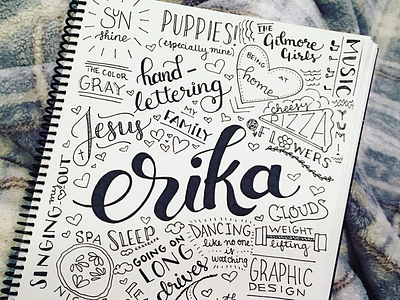 SUN
shine
PUPPIES!
(especially mine)
the
Gilmore
Girls
MUSIC
THE COLOR
GRAY
hand-
lettering
BEING AT
home
cheesy
PIZZA
YUM
Jesus
MY
FAMILY
FLOWERS
erika
SINGING my
OUT
CLOUDS
SPA
SLEEP
GOING ON
LONG
drives
DANCING
like no one
is watching
WEIGHT
lifting
GRAPHIC
DESIGN